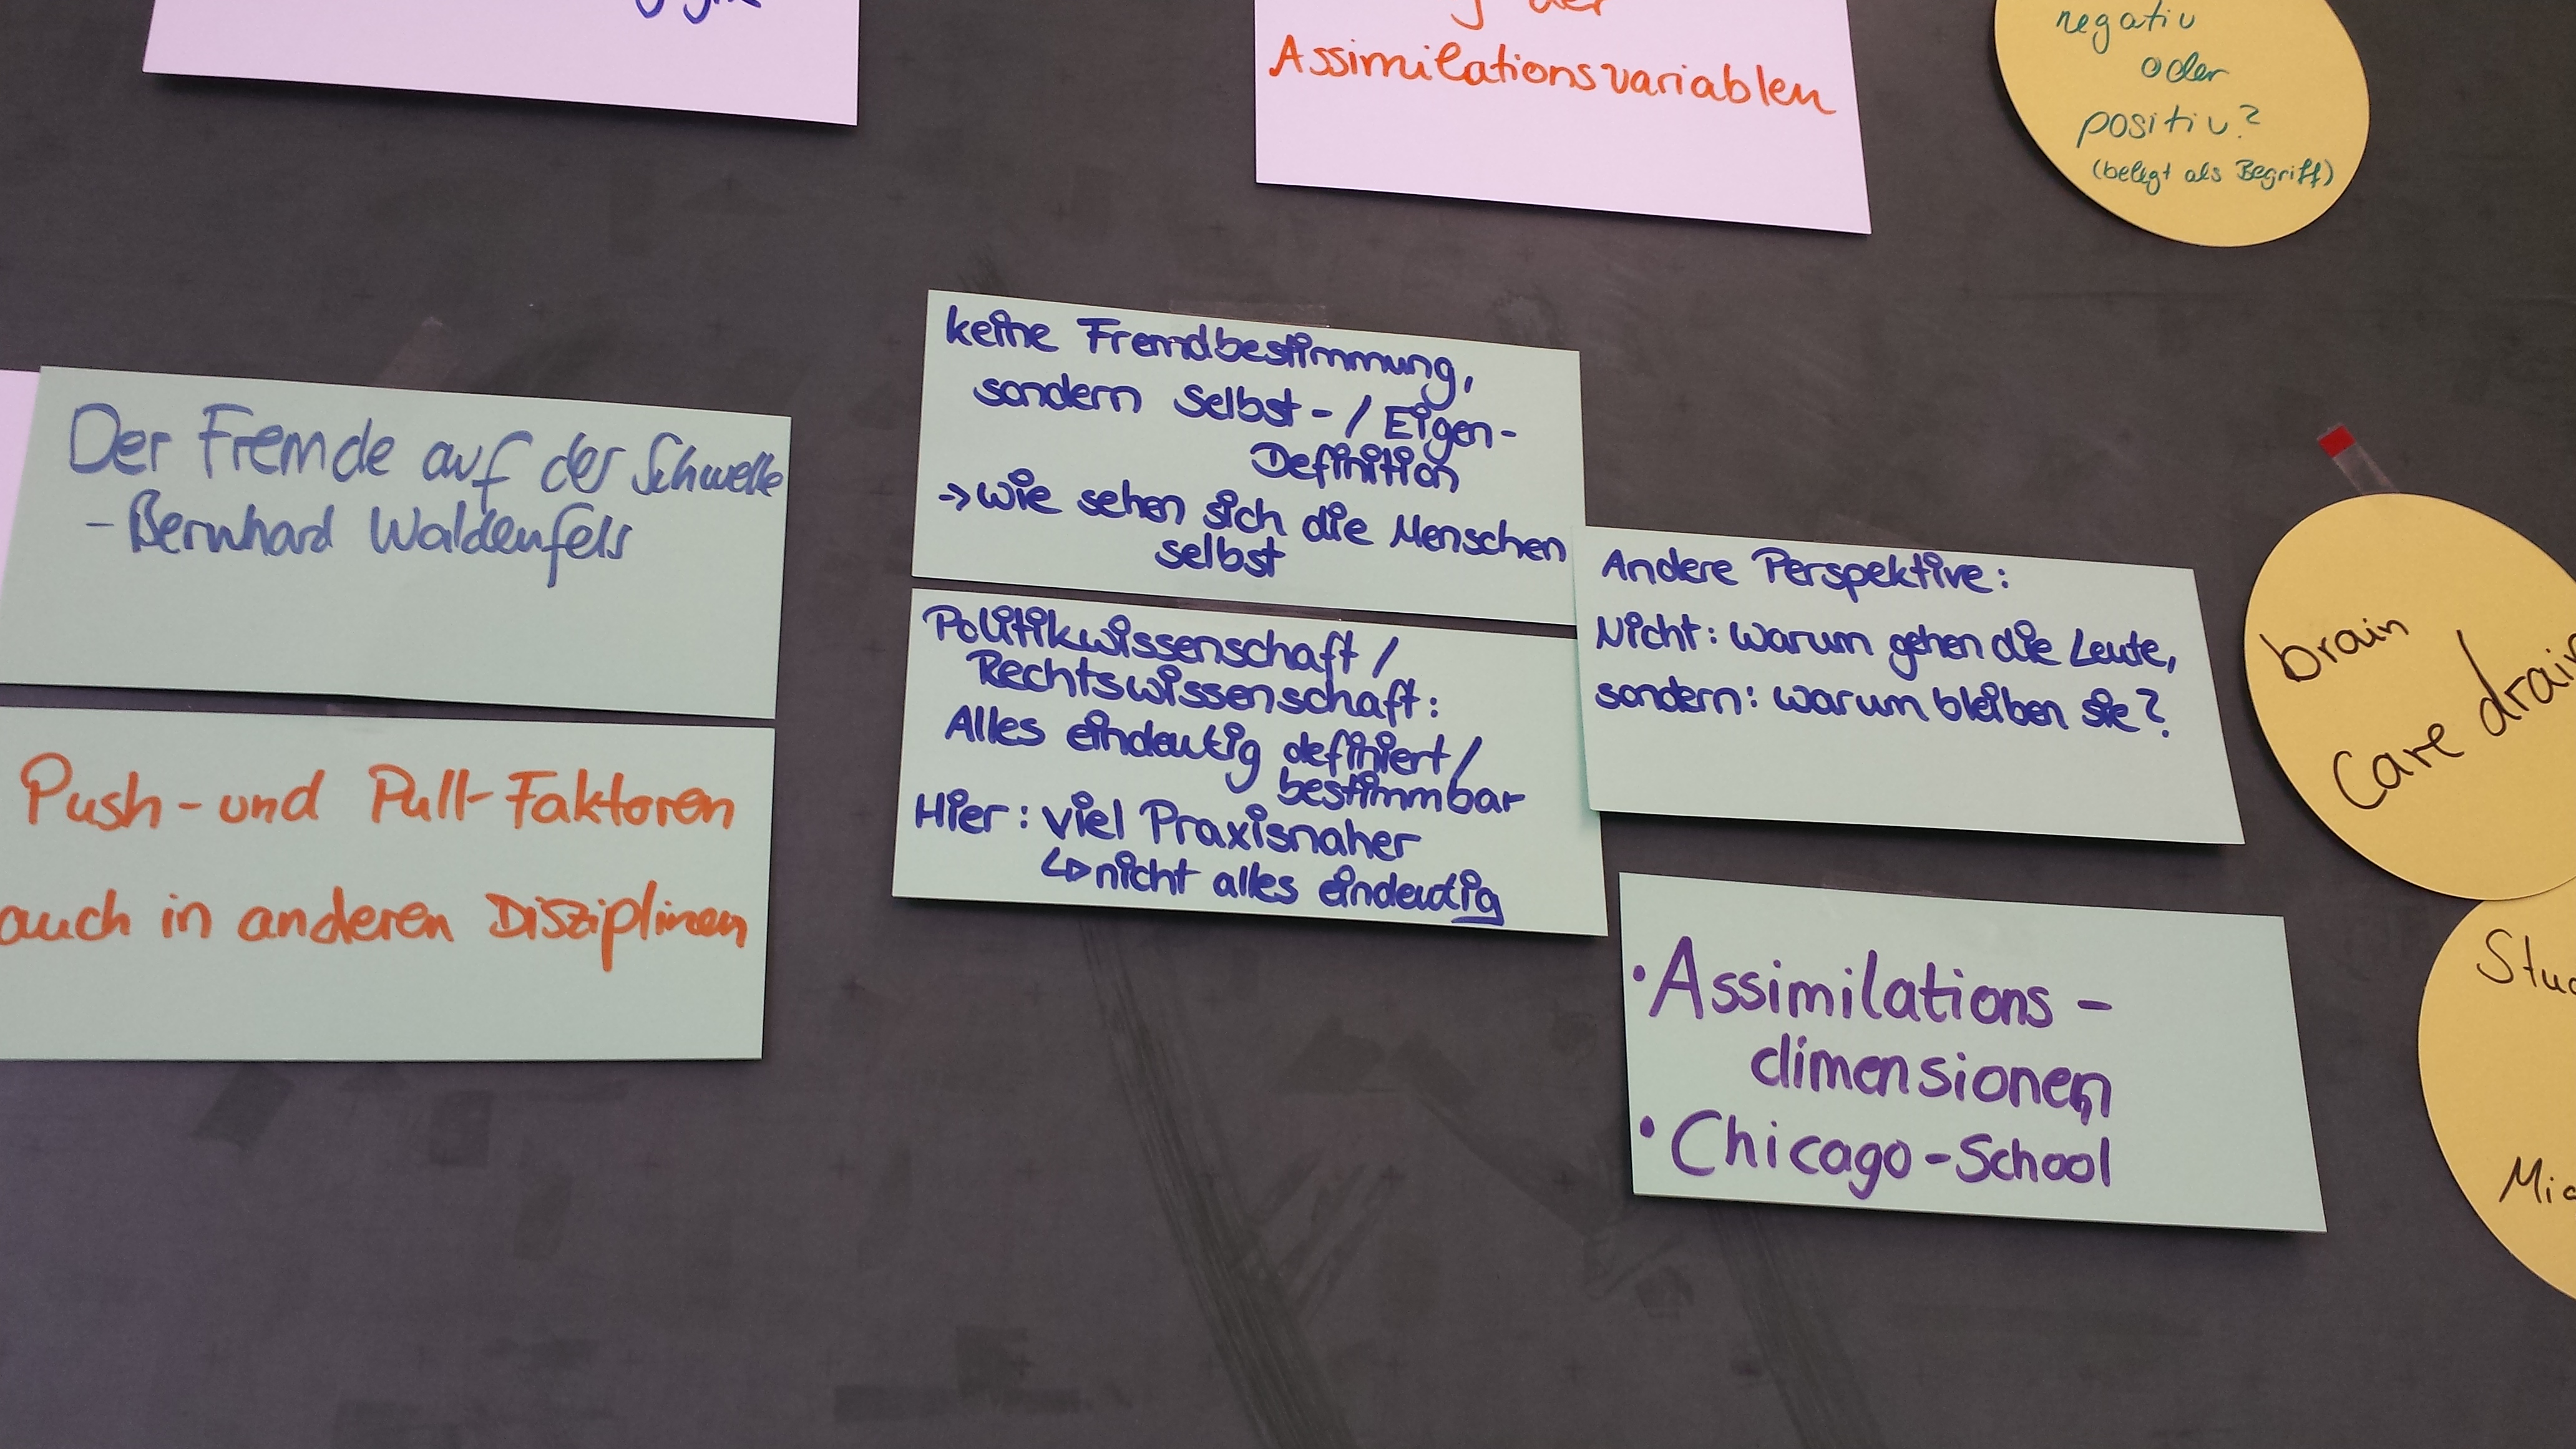 der
Assimilationsvariablen
negativ
oder
positiv?
(belegt als Begriff)
Der Fremde auf der Schwelle
- Bernhard Waldenfels
Push- und Pull-Faktoren
auch in anderen Disziplinen
keine Fremdbestimmung,
sondern Selbst- / Eigen-
Definition
-> wie sehen sich die Menschen
selbst
Politikwissenschaft /
Rechtswissenschaft:
Alles eindeutig definiert /
bestimmbar
Hier: viel Praxisnaher
↳ nicht alles eindeutig
Andere Perspektive:
Nicht: warum gehen die Leute,
sondern: warum bleiben sie?
• Assimilations-
dimensionen
• Chicago-School
brain
Care drain